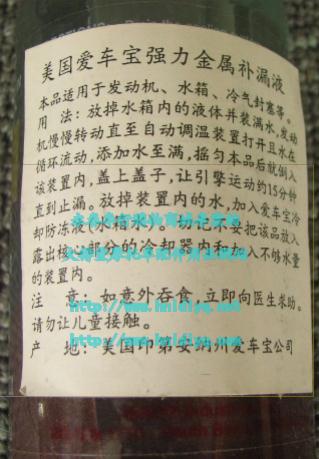 美国爱车宝强力金属补漏液
本品适用于发动机、水箱、冷气封塞等。
用 法：放掉水箱内的液体并装满水，发动
机慢慢转动直至自动调温装置打开且水在
循环流动，添加水至满，摇匀本品后就倒入
该装置内，盖上盖子，让引擎运动约15分钟
直到止漏。放掉装置内的水，加入爱车宝冷
却防冻液（水箱水）。切记不要把该品放入
露出核心部分的冷却器内和加入不够水量
的装置内。
注 意：如意外吞食，立即向医生求助。
请勿让儿童接触。
产 地：美国印第安纳州爱车宝公司